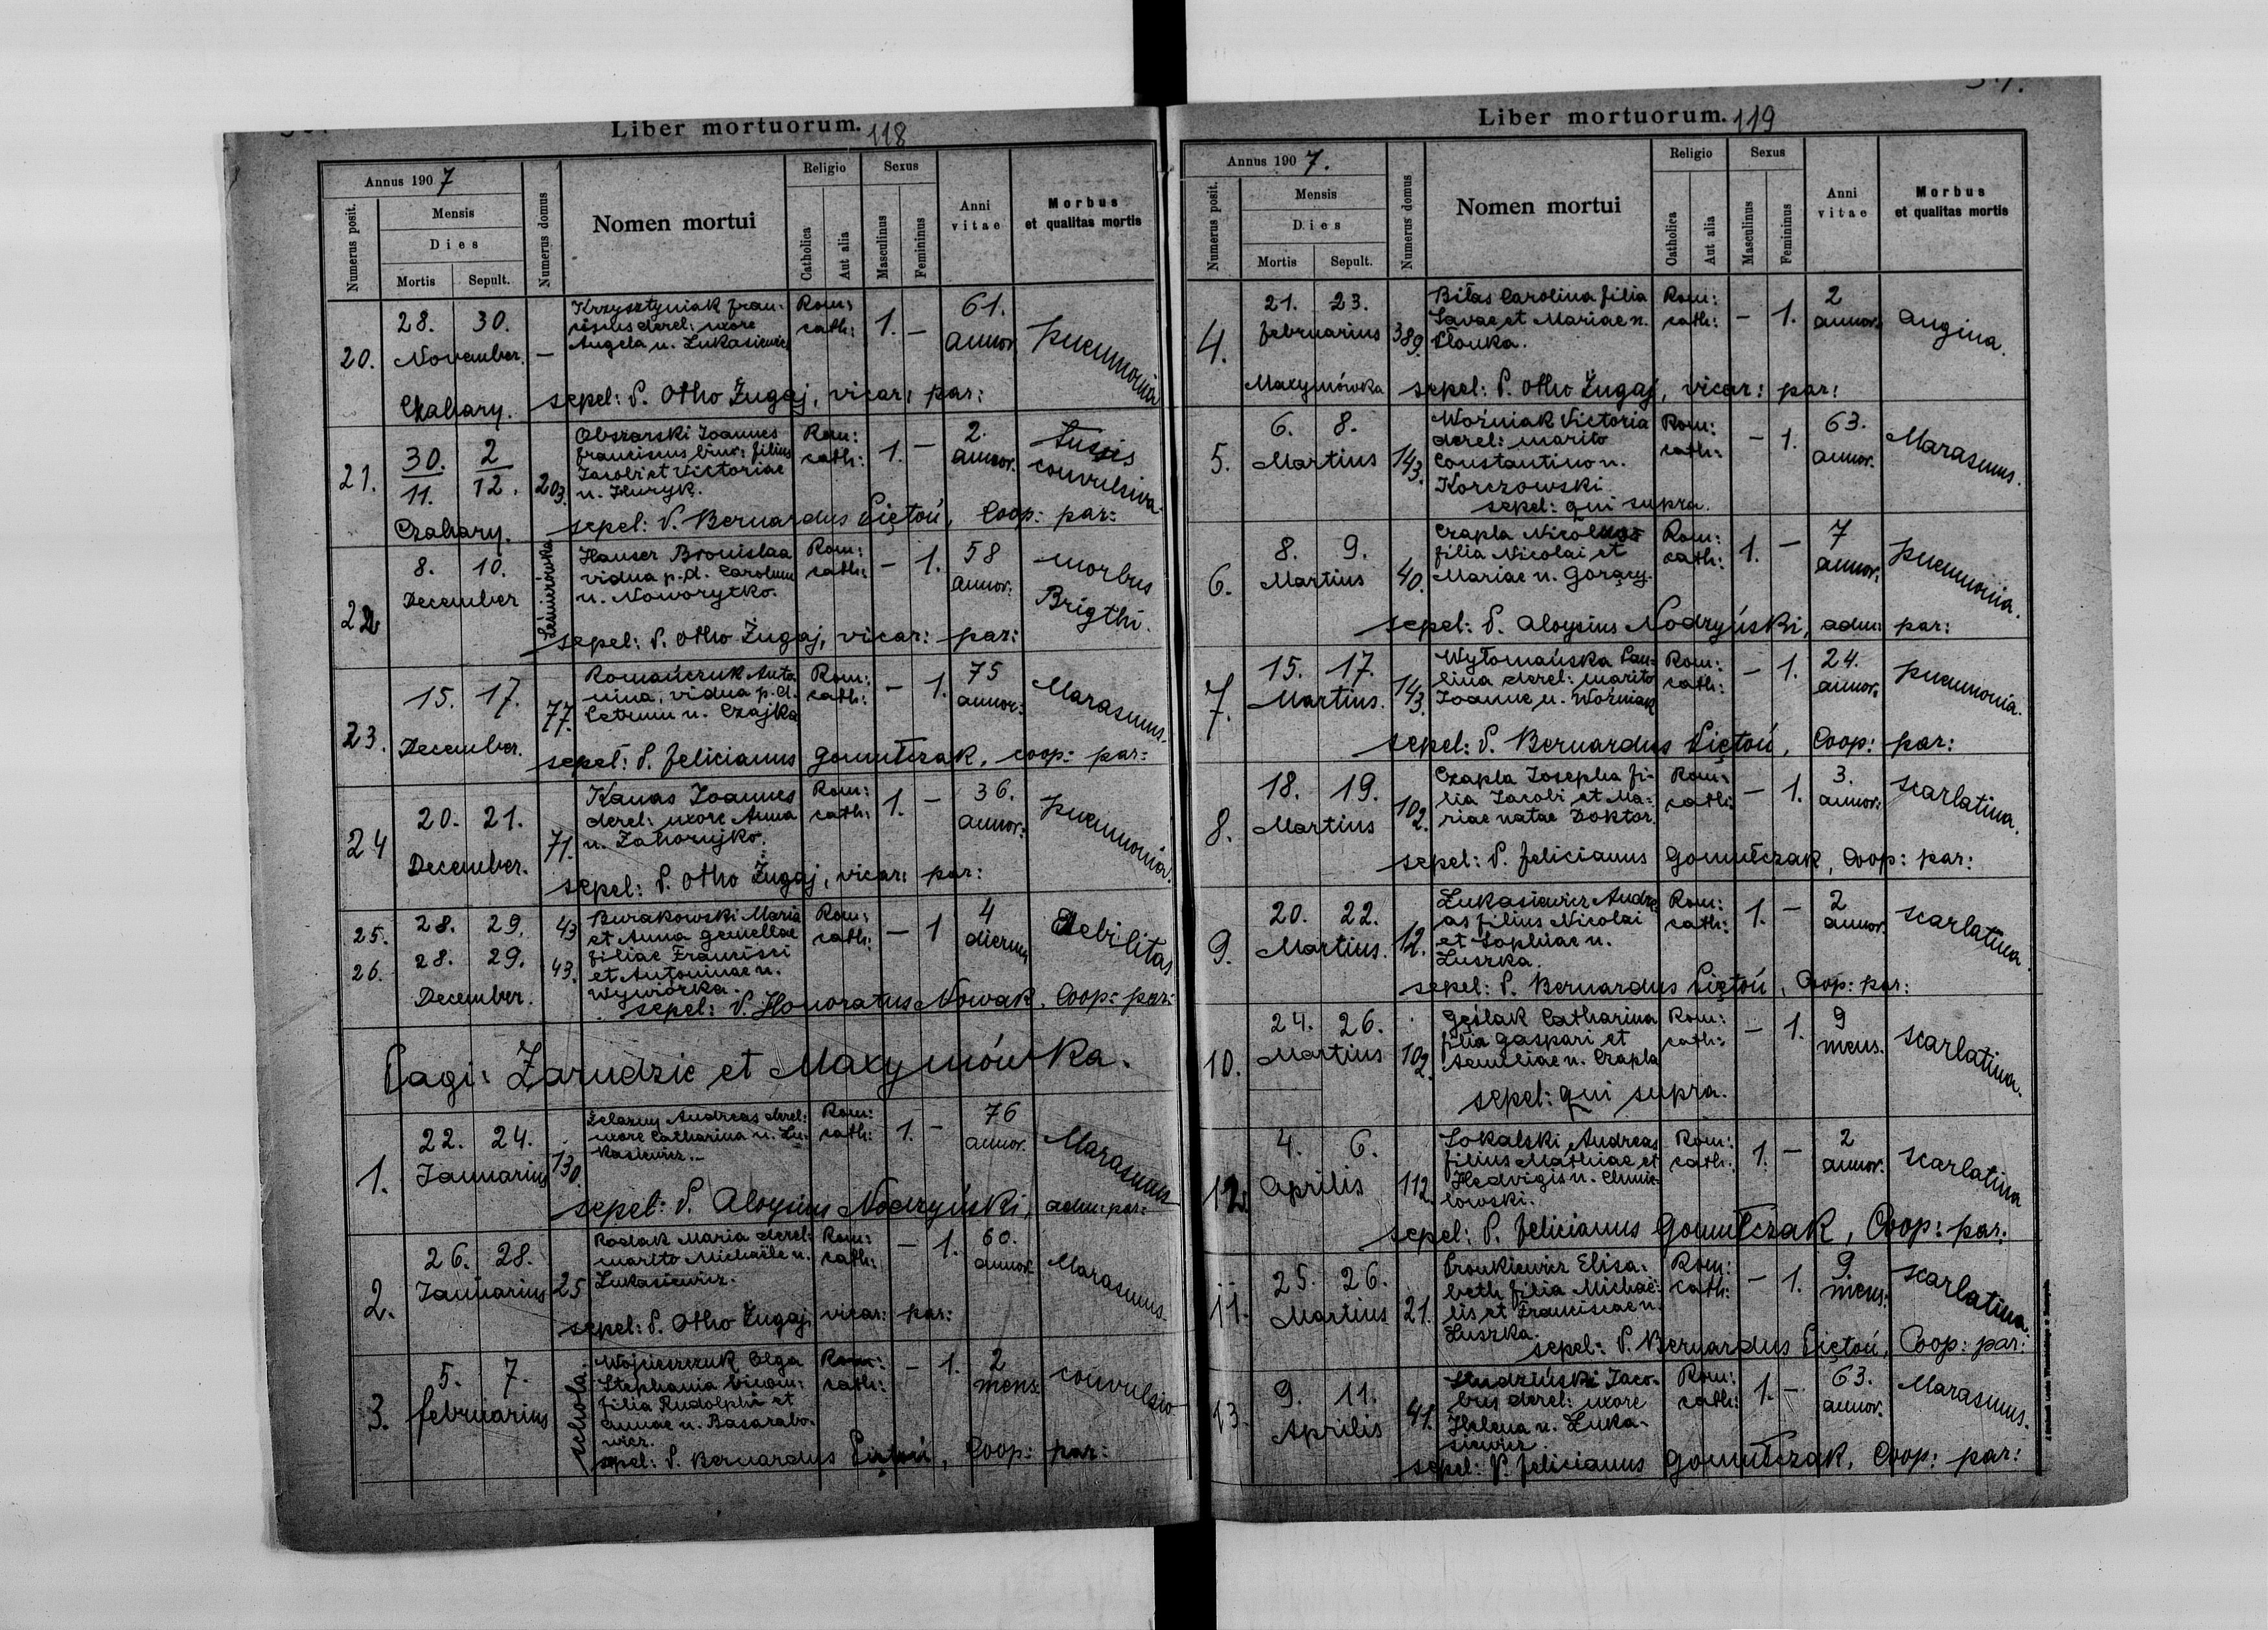 Liber mortuorum. 118
Annus 1907
Numerus posit.
Mensis
Dies
Mortis Sepult.
Numerus domus
Nomen mortui
Religio
Catholica Aut alia
Sexus
Masculinus Femininus
Anni vitae
Morbus et qualitas mortis
20.
28. 30.
November.
Czahary.
—
Krzysztyniak Fran-
ciscus derel: uxore
Angela n. Lukasiewicz
Rom: cath:
1. —
61. annor.
pneumonia
sepel: P. Otho Żugaj, vicar: par:
21.
30. 2
11. 12.
Czahary.
203.
Obszarski Joannes
Franciscus bin: filius
Jacobi et Victoriae
n. Huryk.
Rom: cath:
1. —
2. annor.
tussis convulsiva
sepel: P. Bernardus Piętoń, Coop: par:
22
8. 10.
December
Hauser Bronislaa
vidua p.d. Carolum
n. Noworytko.
Rom: cath:
— 1.
58 annor:
morbus Brigthi.
sepel: P. Otho Żugaj, vicar: par:
23.
15. 17.
December.
77.
Romańczuk Anto-
nina, vidua p.d.
Petrum n. Czajka
Rom: cath:
— 1.
75 annor:
Marasmus.
sepel: P. Felicianus Gomułczak, coop: par:
24
20. 21.
December.
71.
Kanas Joannes
derel: uxore Anna
n. Zahorujko.
Rom: cath:
1. —
36. annor:
pneumonia.
sepel: P. Otho Żugaj, vicar: par:
25. 28. 29. 43
26. 28. 29. 43.
December.
Burakowski Maria
et Anna gemellae
filiae Francisci
et Antoninae n.
Wywiórka.
Rom: cath:
— 1
4 dierum
Debilitas
sepel: P. Honoratus Nowak, Coop: par:
Pagi: Zarudzie et Maxymówka.
1.
22. 24.
Januarius
130
Żelazny Andreas derel:
uxore Catharina n. Lu-
kasiewicz.
Rom: cath:
1. —
76 annor.
Marasmus
sepel: P. Aloysius Nodzyński, adm: par:
2.
26. 28.
Januarius
25
Maria derel:
marito Michaële n.
Lukasiewicz.
Rom: cath:
— 1.
60. annor.
Marasmus.
sepel: P. Otho Żugaj, vicar: par:
3.
5. 7.
februarius
schola.
Wojcieszczuk Olga
Stephania binom:
filia Rudolphi et
Annae n. Basarabo-
wicz.
Rom: cath:
— 1.
2 mens.
convulsio
sepel: P. Bernardus Piętoń, Coop: par:
Liber mortuorum. 119
Annus 1907.
Numerus posit.
Mensis
Dies
Mortis Sepult.
Numerus domus
Nomen mortui
Religio
Catholica Aut alia
Sexus
Masculinus Femininus
Anni vitae
Morbus et qualitas mortis
4.
21. 23.
februarius
Maxymówka
389.
Biłas Carolina filia
Savae et Mariae n.
Płonka.
Rom: cath:
— 1.
2 annor.
angina.
sepel: P. Otho Żugaj, vicar: par:
5.
6. 8.
Martius
143.
Woźniak Victoria
derel: marito
Constantino n.
Korczowski
Rom: cath:
— 1.
63. annor.
Marasmus.
sepel: qui supra.
6.
8. 9.
Martius
40.
Czapla Nicolaus
filia Nicolai et
Mariae n. Gorący.
Rom: cath:
1. —
7 annor.
pneumonia.
sepel: P. Aloysius Nodzyński, adm: par:
7.
15. 17.
Martius.
143.
Wytomańska Pau-
lina derel: marito
Joanne n. Woźniak
Rom: cath:
— 1.
24. annor.
pneumonia.
sepel: P. Bernardus Piętoń, Coop: par:
8.
18. 19.
Martius
102.
Czapla Josepha fi-
lia Jacobi et Ma-
riae natae Doktor.
Rom: cath:
— 1.
3. annor:
scarlatina.
sepel: P. Felicianus Gomułczak, Coop: par:
9.
20. 22.
Martius.
12.
Lukasiewicz Andre-
as filius Nicolai
et Sophiae n.
Luszka.
Rom: cath:
1. —
2 annor.
scarlatina.
sepel: P. Bernardus Piętoń, Coop: par:
10.
24. 26.
Martius
102.
Gęślak Catharina
filia Gaspari et
Aemiliae n. Czapla
Rom: cath:
— 1.
9 mens.
scarlatina.
sepel: qui supra.
12.
4. 6.
Aprilis
112.
Sokalski Andreas
filius Mathiae et
Hedvigis n. Chmie-
lowski.
Rom: cath:
1. —
2 annor.
scarlatina
sepel: P. Felicianus Gomułczak, Coop: par:
11.
25. 26.
Martius
21.
Pronkiewicz Elisa-
beth filia Michaë-
lis et Franciscae n.
Luszka.
Rom: cath:
— 1.
9. mens.
scarlatina.
sepel: P. Bernardus Piętoń, Coop: par:
13.
9. 11.
Aprilis
41.
Studziński Jaco-
bus derel: uxore
Helena n. Luka-
siewicz.
Rom: cath:
1. —
63. annor.
Marasmus.
sepel: P. Felicianus Gomułczak, Coop: par: